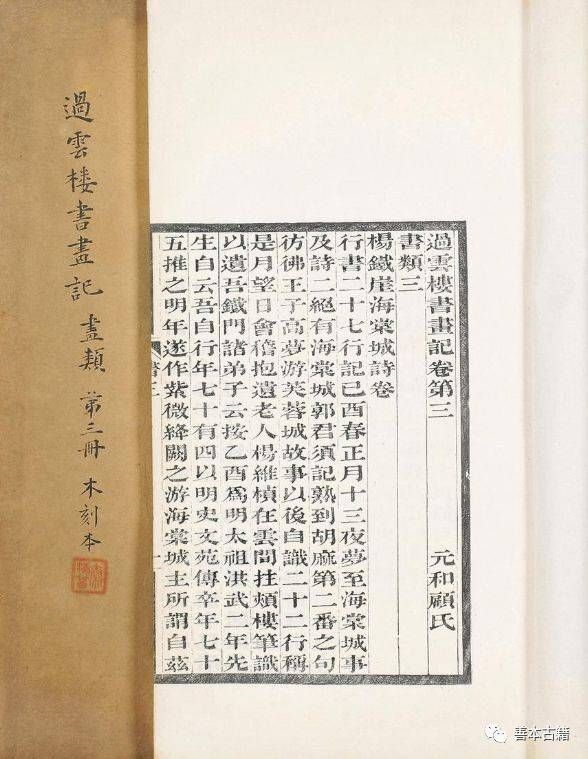 過雲樓書畫記卷第三 元和顧氏
書類三
楊鐵崖海棠城詩卷
行書二十七行記已酉春正月十三夜夢至海棠城事
及詩二絕有海棠城郭君須記熟到胡麻第二番之句
彷彿王子高夢游芙蓉城故事以後自識二十二行稱
是月望日會稽抱遺老人楊維楨在雲間拄頰樓筆識
以遺吾鐵門諸弟子云按乙酉爲明太祖洪武二年先
生自云吾自行年七十有四以明史文苑傳卒年七十
五推之明年遂作紫微絳闕之游海棠城主所謂自茲
過雲楼書畫記 畫類 第三冊 木刻本
善本古籍